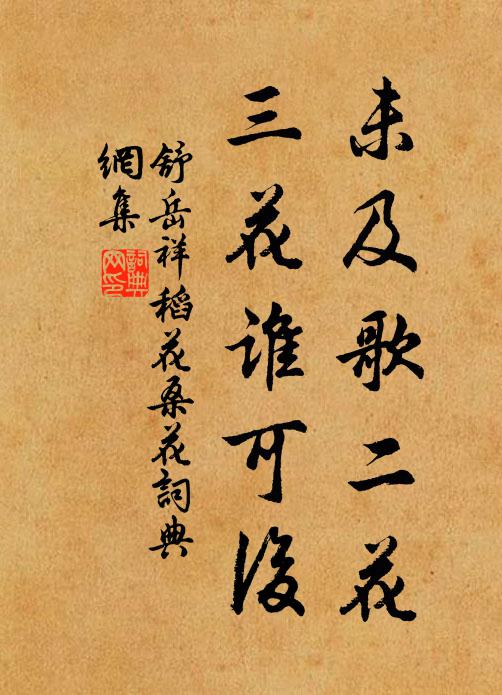 未及歌二花
三花谁可後
舒岳祥稻花桑花詞典
網集
詞典
网印